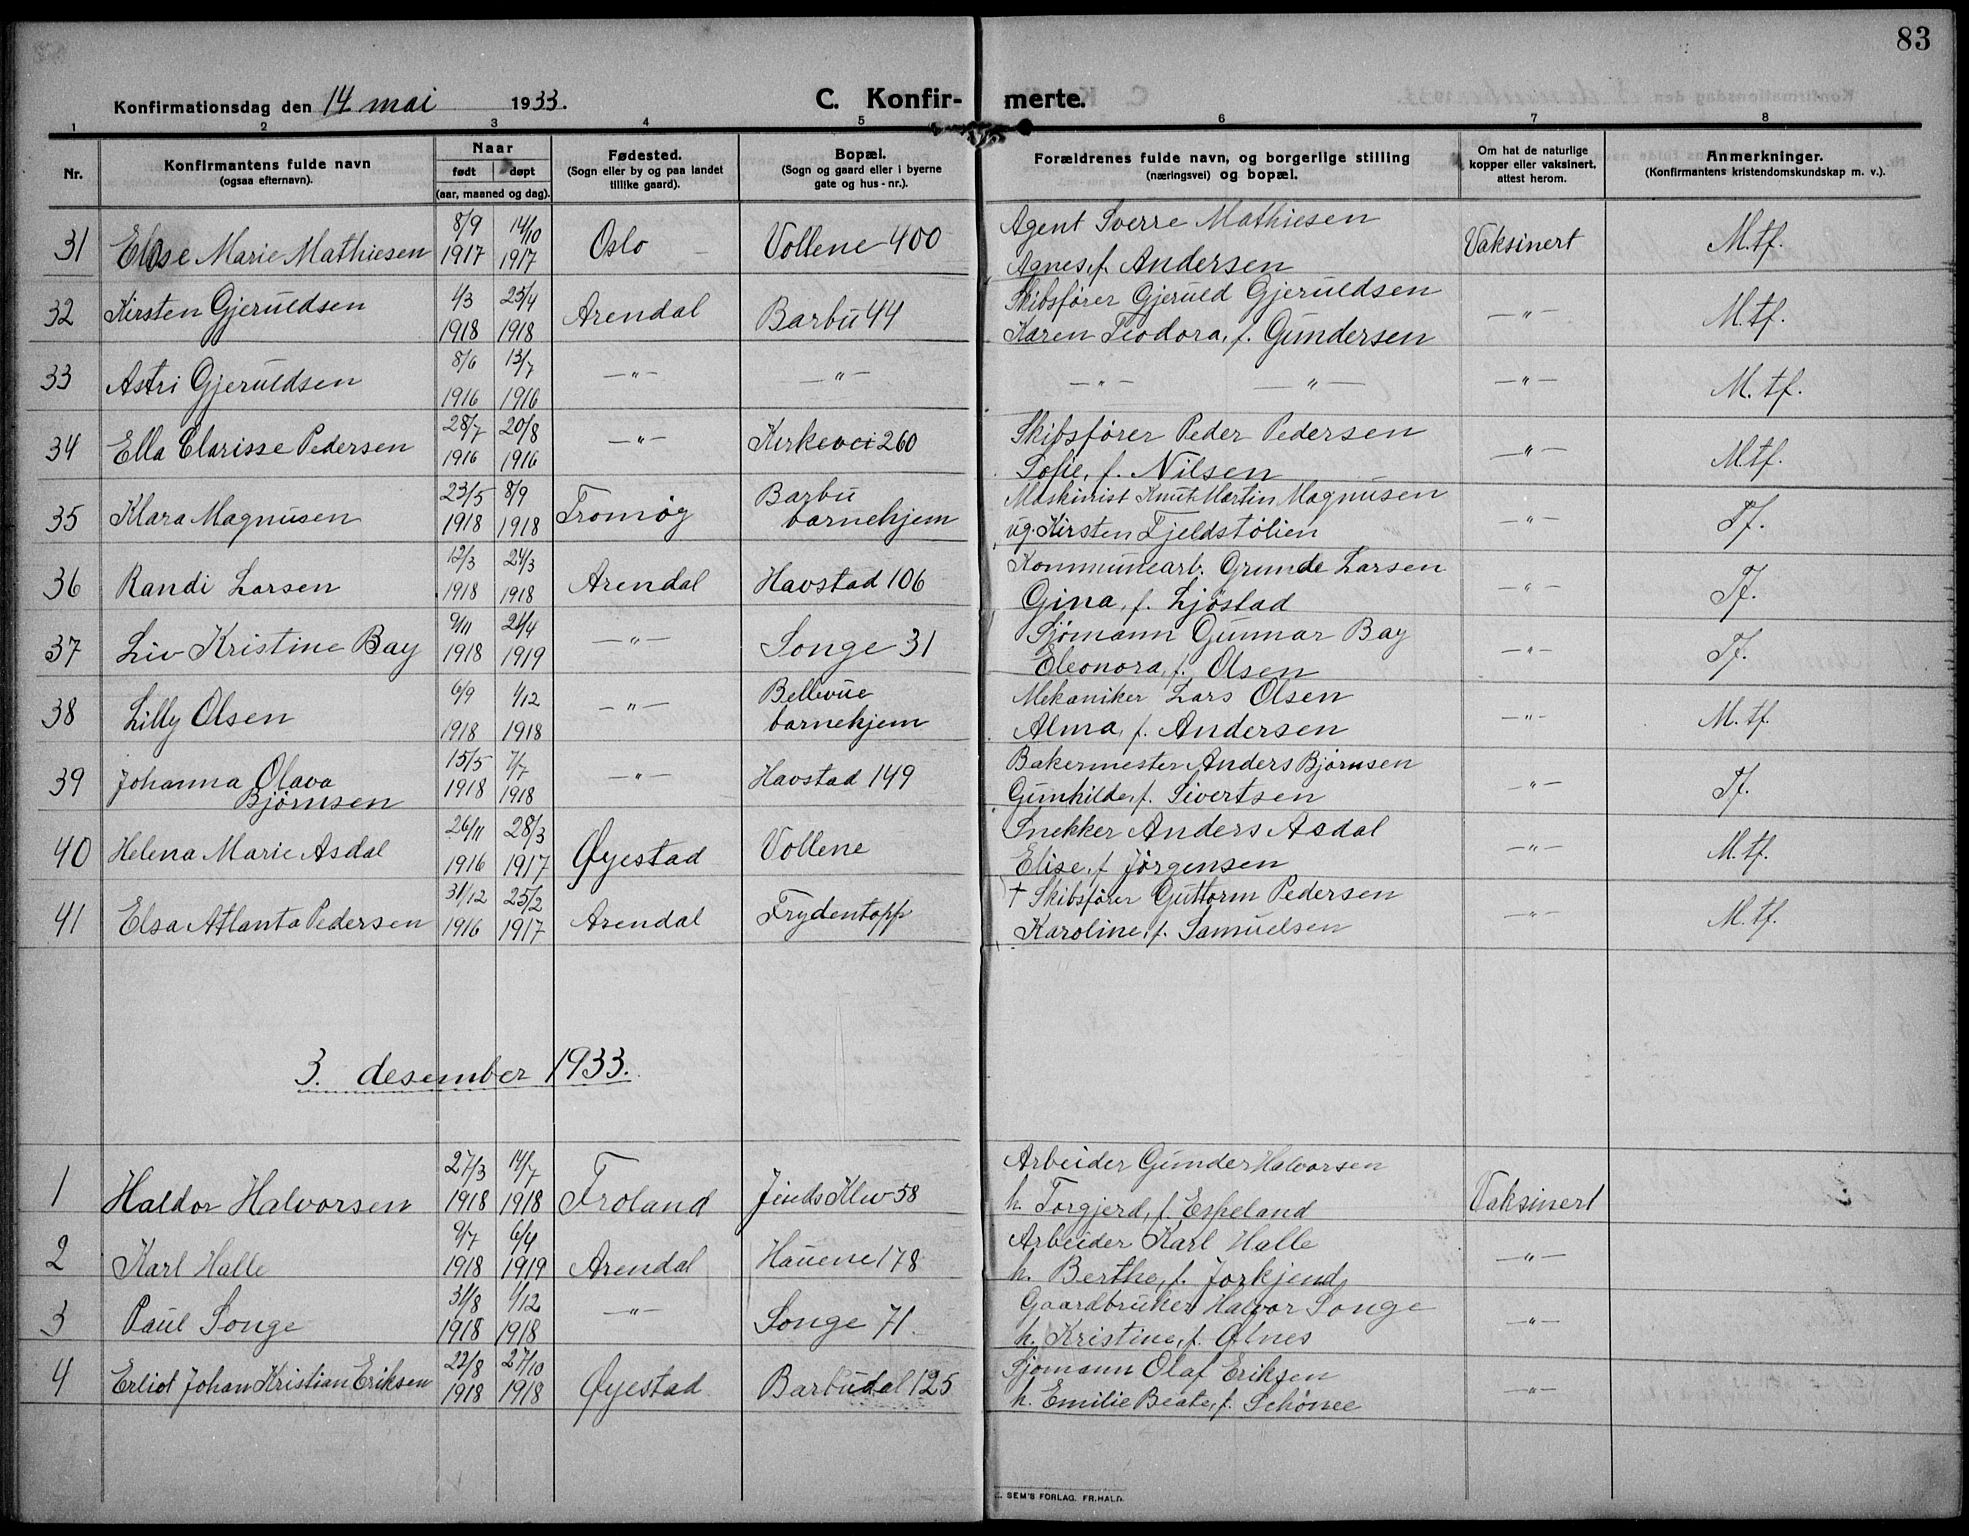 83
Konfirmationsdag den 14 mai 1933.
C. Konfir- merte.
1 2 3 4 5 6 7 8
Nr.
Konfirmantens fulde navn
(ogsaa efternavn).
Naar
født døpt
(aar, maaned og dag).
Fødested.
(Sogn eller by og paa landet
tillike gaard).
Bopæl.
(Sogn og gaard eller i byerne
gate og hus-nr.).
Forældrenes fulde navn, og borgerlige stilling
(næringsvei) og bopæl.
Om hat de naturlige
kopper eller vaksinert,
attest herom.
Anmerkninger.
(Konfirmantens kristendomskundskap m. v.).
8/9 14/10 Agent Sverre Mathiesen
31 Marie Mathiesen 1917 1917 Oslo Vollene 400 Agnes, f. Andersen Vaksinert M.tf.
1/3 25/4 Skibsfører Gjeruld Gjeruldsen
32 Kirsten Gjeruldsen 1918 1918 Arendal Barbu 44 Karen Teodora, f. Gundersen —"— M.tf.
8/6 13/7
33 Astri Gjeruldsen 1916 1916 —"— —"— —"— —"— —"— M.tf.
28/7 20/8 Skibsfører Peder Pedersen
34 Ella Clarisse Pedersen 1916 1916 —"— Kirkevei 260 Sofie, f. Nilsen —"— M.tf.
23/5 8/9 Barbu Maskinist Knut Martin Magnusen
35 Klara Magnusen 1918 1918 Tromøy barnehjem ug. Kirsten Fjeldstølien —"— Tf.
12/3 24/3 Kommunearb. Grunde Larsen
36 Randi Larsen 1918 1918 Arendal Havstad 106 Gina, f. Ljøstad —"— Tf.
9/11 21/4 Sjømann Gunnar Bay
37 Liv Kristine Bay 1918 1919 —"— Songe 31 Eleonora, f. Olsen —"— Tf.
6/9 1/12 Bellevue Mekaniker Lars Olsen
38 Lilly Olsen 1918 1918 —"— barnehjem Alma, f. Andersen —"— M.tf.
15/5 7/7 Bakermester Anders Bjørnsen
39 Johanna Olava Bjørnsen 1918 1918 —"— Havstad 149 Gunhilde, f. Sivertsen —"— Tf.
26/11 28/3 Snekker Anders Asdal
40 Helena Marie Asdal 1916 1917 Øyestad Vollene Elise, f. Jørgensen —"— M.tf.
31/12 25/2 + Skibsfører Guttorm Pedersen
41 Elsa Atlanta Pedersen 1916 1917 Arendal Frydentopp Karoline, f. Samuelsen —"— M.tf.
3. desember 1933.
27/3 14/7 Arbeider Gunder Halvorsen
1 Haldor Halvorsen 1918 1918 Froland 58 h. Torgjerd, f. Espeland Vaksinert
9/7 6/4 Arbeider Karl Halle
2 Karl Halle 1918 1919 Arendal Hauene 178 h. Berthe, f. Jorkjend
—"—
31/8 1/12 Gaardbruker Halvor Songe
3 Paul Songe 1918 1918 —"— Songe 71. h. Kristine, f. Alnes —"—
22/8 27/10 Sjømann Olaf Eriksen
4 Johan Kristian Eriksen 1918 1918 Øyestad Barbudal 125 h. Emilie Beate, f. Schønee —"—
SEM'S FORLAG. FR.HALD.